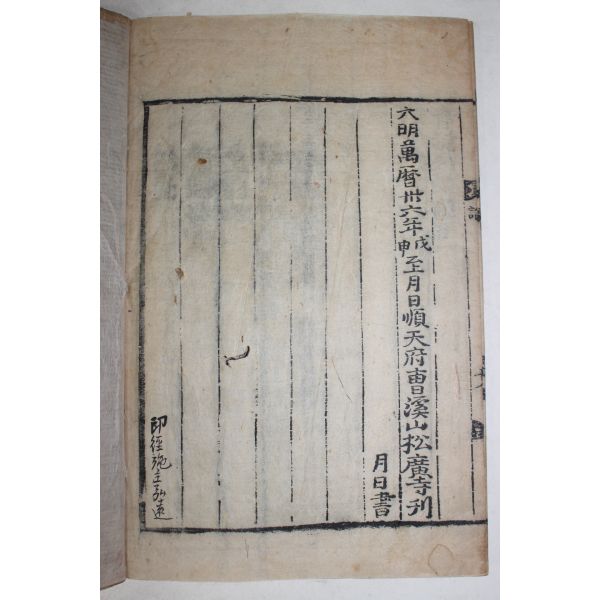 大明萬暦卅六年戊申至月日順天府曹溪山松廣寺刊
月日書
印経